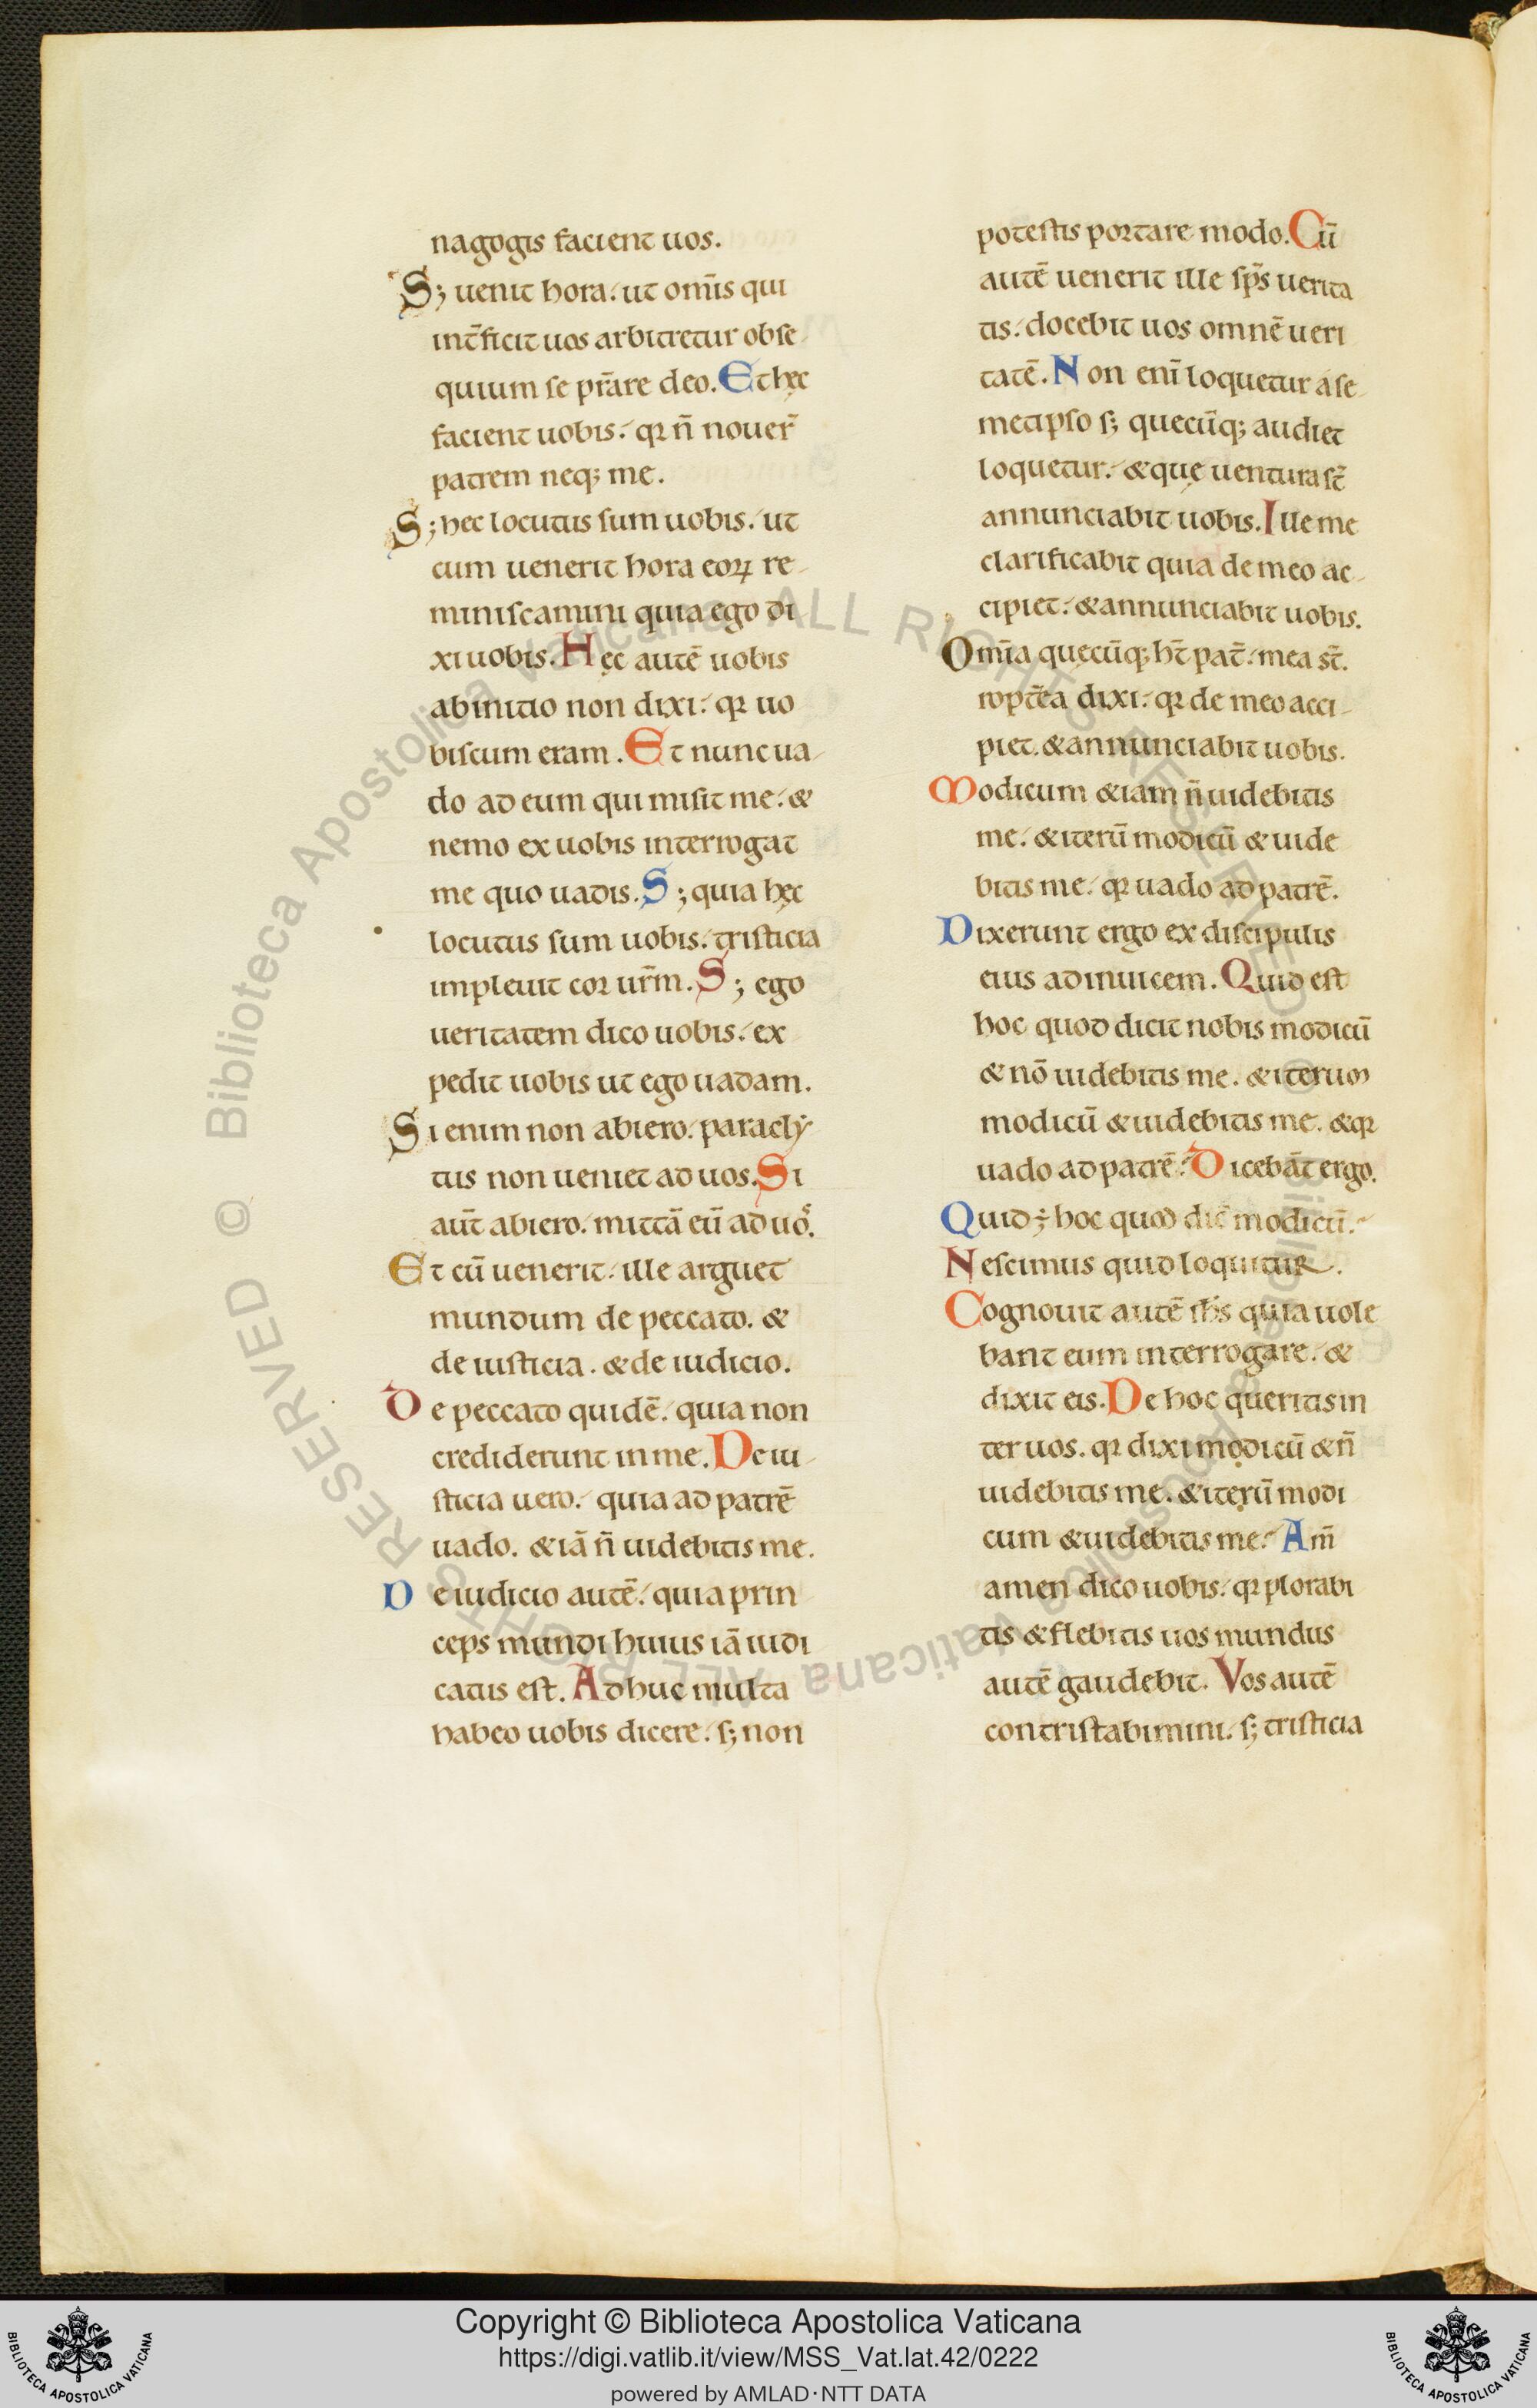 nagogis facient uos.
S; uenit hora. ut om̄is qui
int̄ficit uos arbitretur obse
quium se pr̄are deo. Et hęc
facient uobis. qꝛ n̄ nouer̄
patrem neq; me.
S; hec locutus sum uobis. ut
cum uenerit hora eoꝝ re-
miniscamini quia ego di
xi uobis. Hęc autē uobis
ab initio non dixi. qꝛ uo
biscum eram. Et nunc ua-
do ad eum qui misit me. &
nemo ex uobis interrogat
me quo uadis. S; quia hęc
locutus sum uobis. tristicia
impleuit cor ur̄m. S; ego
ueritatem dico uobis. ex
pedit uobis ut ego uadam.
Si enim non abiero. paracly-
tus non ueniet ad uos. Si
aut̄ abiero. mittā eū ad uos.
Et cū uenerit. ille arguet
mundum de peccato. &
de iusticia. & de iudicio.
De peccato quidē. quia non
crediderunt in me. De iu-
sticia uero. quia ad patrē
uado. & iā n̄ uidebitis me.
De iudicio autē. quia prin
ceps mundi huius iā iudi
catus est. Adhuc multa
habeo uobis dicere. s; non
potestis portare modo. Cū
autē uenerit ille sp̄s uerita
tis. docebit uos omnē ueri
tatē. Non enī loquetur a se
metipso s; quecūq; audiet
loquetur. & quę uentura st̄
annunciabit uobis. Ille me
clarificabit quia de meo ac-
cipiet. & annunciabit uobis.
Om̄ia quęcūq; ht̄ pat̄. mea st̄.
ropt̄ea dixi. qꝛ de meo acci-
piet. & annunciabit uobis.
Modicum & iam n̄ uidebitis
me. & iterū modicū & uide
bitis me. qꝛ uado ad patrē.
Dixerunt ergo ex discipulis
eius ad inuicem. Quid est
hoc quod dicit nobis modicū
& nō uidebitis me. & iterum
modicū & uidebitis me. & qꝛ
uado ad patrē. Dicebāt ergo.
Quid ÷ hoc quod dic̄ modicū.
Nescimus quid loquitur.
Cognouit autē ih̄s quia uole
bant eum interrogare. &
dixit eis. De hoc queritis in
ter uos. qꝛ dixi modicū & n̄
uidebitis me. & iterū modi
cum & uidebitis me. Am̄
amen dico uobis. qꝛ plorabi
tis & flebitis uos mundus
autē gaudebit. Vos autē
contristabimini. s; tristicia
© Biblioteca Apostolica Vaticana ALL RIGHTS RESERVED
© Biblioteca Apostolica Vaticana ALL RIGHTS RESERVED
Copyright © Biblioteca Apostolica Vaticana
https://digi.vatlib.it/view/MSS_Vat.lat.42/0222
powered by AMLAD·NTT DATA
BIBLIOTECA APOSTOLICA VATICANA
BIBLIOTECA APOSTOLICA VATICANA